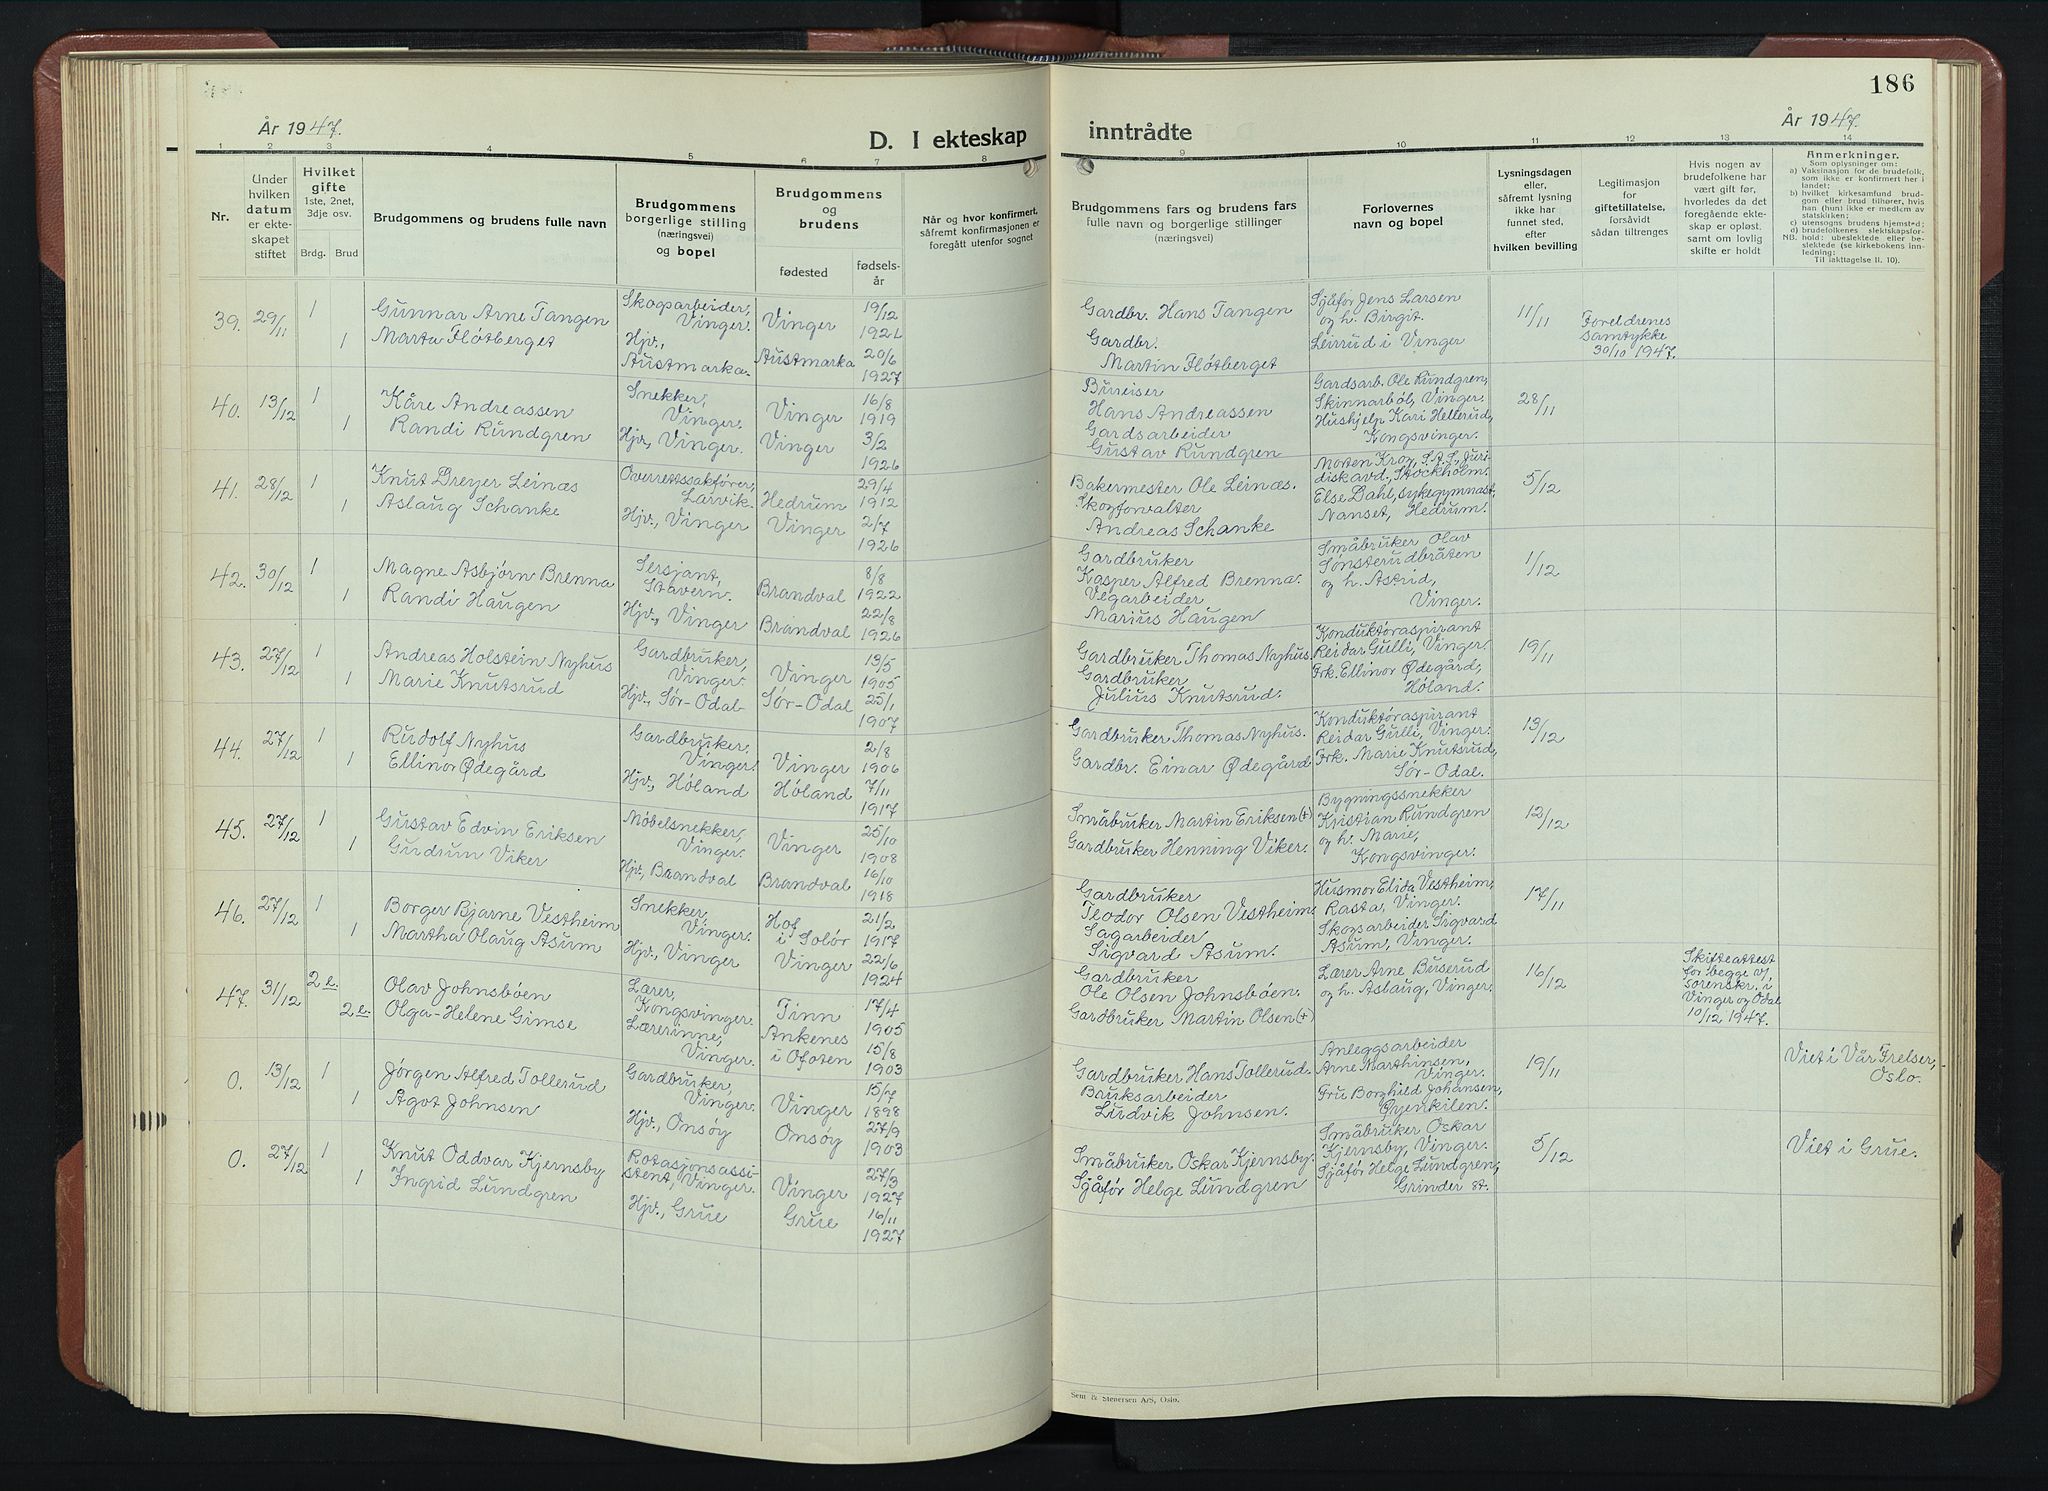 186
År 1947.
D. I ekteskap
inntrådte
År 1947.
1 2 3 4 5 6 7 8 9 10 11 12 13 14
Nr.
Under
hvilken
datum
er ekte-
skapet
stiftet
Hvilket
gifte
1ste, 2net,
3dje osv.
Brdg. Brud
Brudgommens og brudens fulle navn
Brudgommens
borgerlige stilling
(næringsvei)
og bopel
Brudgommens
og
brudens
fødested
fødsels-
år
Når og hvor konfirmert,
såfremt konfirmasjonen er
foregått utenfor sognet
Brudgommens fars og brudens fars
fulle navn og borgerlige stillinger
(næringsvei)
Forlovernes
navn og bopel
Lysningsdagen
eller,
såfremt lysning
ikke har
funnet sted,
efter
hvilken bevilling
Legitimasjon
for
giftetillatelse,
forsåvidt
sådan tiltrenges
Hvis nogen av
brudefolkene har
vært gift før,
hvorledes da det
foregående ekte-
skap er opløst,
samt om lovlig
skifte er holdt
Anmerkninger.
Som oplysninger om:
a) Vaksinasjon for de brudefolk,
som ikke er konfirmert her i
landet;
b) hvilket kirkesamfund brud-
gom eller brud tilhører, hvis
han (hun) ikke er medlem av
statskirken;
c) utensogns brudens hjemsted;
d) brudefolkenes slektskapsfor-
hold: ubeslektede eller be-
slektede (se kirkebokens inn-
ledning;
NB.
Til iakttagelse ll. 10).
39. 29/11 1 Gunnar Arne Tangen
1 Marta Fløtberget
Skogsarbeider,
Vinger.
Hjv.,
Austmarka.
Vinger
Austmarka
19/12
1921
20/6
1927
Gardbr. Hans Tangen
Gardbr.
Martin Fløtberget
Sjåfør Jens Larsen
og h. Birgit.
Leirud i Vinger
11/11
Foreldrenes
samtykke
30/10 1947.
40. 13/12 1 Kåre Andreassen
1 Randi Rundgren
Snekker,
Vinger.
Hjv., Vinger.
Vinger
Vinger
16/8
1919
3/2
1926
Bureiser
Hans Andreassen
Gardsarbeider
Gustav Rundgren
Gardsarb. Ole Rundgren,
Skinnarbøl, Vinger.
Hushjelp Kari Hellerud,
Kongsvinger.
28/11
41. 28/12 1 Knut Dreyer Leinæs
1 Aslaug Schanke
Overrettssakfører,
Larvik.
Hjv., Vinger
Hedrum
Vinger
29/4
1912
2/7
1926
Bakermester Ole Leinæs.
Skogforvalter
Andreas Schanke
Morten Krog, S.A.S., Juri-
disk avd., Stockholm.
Else Dahl, sykegymnast,
Nanset, Hedrum.
5/12
42. 30/12 1 Magne Asbjørn Brenna
1 Randi Haugen
Sersjant,
Stavern.
Hjv., Vinger
Brandval
Brandval
8/8
1922
22/8
1926
Gardbruker
Kasper Alfred Brenna.
Vegarbeider
Marius Haugen
Småbruker Olav
Sønsterudbråten
og h. Astrid,
Vinger.
1/12
43. 27/12 1 Andreas Holstein Nyhus
1 Marie Knutsrud
Gardbruker,
Vinger.
Hjv., Sør-Odal
Vinger
Sør-Odal
13/5
1905
25/1
1907
Gardbruker Thomas Nyhus.
Gardbruker
Julius Knutsrud.
Konduktøraspirant
Reidar Gulli, Vinger.
Frk. Ellinor Ødegård,
Høland.
19/11
44. 27/12 1 Rudolf Nyhus
1 Ellinor Ødegård
Gardbruker.
Vinger.
Hjv., Høland
Vinger
Høland
2/8
1906
7/11
1917
Gardbruker Thomas Nyhus.
Gardbr. Einar Ødegård
Konduktøraspirant
Reidar Gulli, Vinger.
Frk. Marie Knutsrud,
Sør-Odal.
13/12
45. 27/12 1 Gustav Edvin Eriksen
1 Gudrun Viker
Møbelsnekker,
Vinger.
Hjv., Brandval
Vinger
Brandval
25/10
1908
16/10
1918
Småbruker Martin Eriksen (+)
Gardbruker Henning Viker.
Bygningssnekker
Kristian Rundgren
og h. Marie,
Kongsvinger.
12/12
46. 27/12 1 Borger Bjarne Vestheim
1 Martha Olaug Asum
Snekker,
Vinger.
Hjv., Vinger
Hof
i Solør
Vinger
21/2
1917
22/6
1924
Gardbruker
Teodor Olsen Vestheim.
Sagarbeider
Sigvard Asum.
Husmor Elida Vestheim,
Rasta, Vinger.
Skogsarbeider Sigvard
Asum, Vinger.
17/11
47. 31/12 2 e. Olav Johnsbøen
2 e. Olga-Helene Gimse
Lærer,
Kongsvinger.
Lærerinne,
Vinger.
Tinn
Ankenes
i Ofoten
17/4
1905
15/8
1903
Gardbruker
Ole Olsen Johnsbøen.
Gardbruker Martin Olsen (+)
Lærer Arne Buserud
og h. Aslaug, Vinger.
16/12
Skifteattest
for begge av
sorenskr. i
Vinger og Odal
10/12 1947.
0. 13/12 1 Jørgen Alfred Tollerud
1 Agot Johnsen
Gardbruker,
Vinger.
Hjv., Onsøy
Vinger
Onsøy
15/7
1898
27/9
1903
Gardbruker Hans Tollerud.
Bruksarbeider
Ludvik Johnsen.
Anleggsarbeider
Arne Marthinsen,
Vinger.
Fru Borghild Johansen,
Øyenkilen.
19/11
Viet i Vår Frelser,
Oslo.
0. 27/12 1 Knut Oddvar Kjernsby
1 Ingrid Lundgren
Rotasjonsassi-
stent, Vinger.
Hjv., Grue
Vinger
Grue
27/3
1927
16/11
1927
Småbruker Oskar Kjernsby.
Sjåfør Helge Lundgren
Småbruker Oskar
Kjernsby, Vinger.
Sjåfør Helge Lundgren,
Grinder st.
5/12
Viet i Grue.
Sem & Stenersen A/S, Oslo.